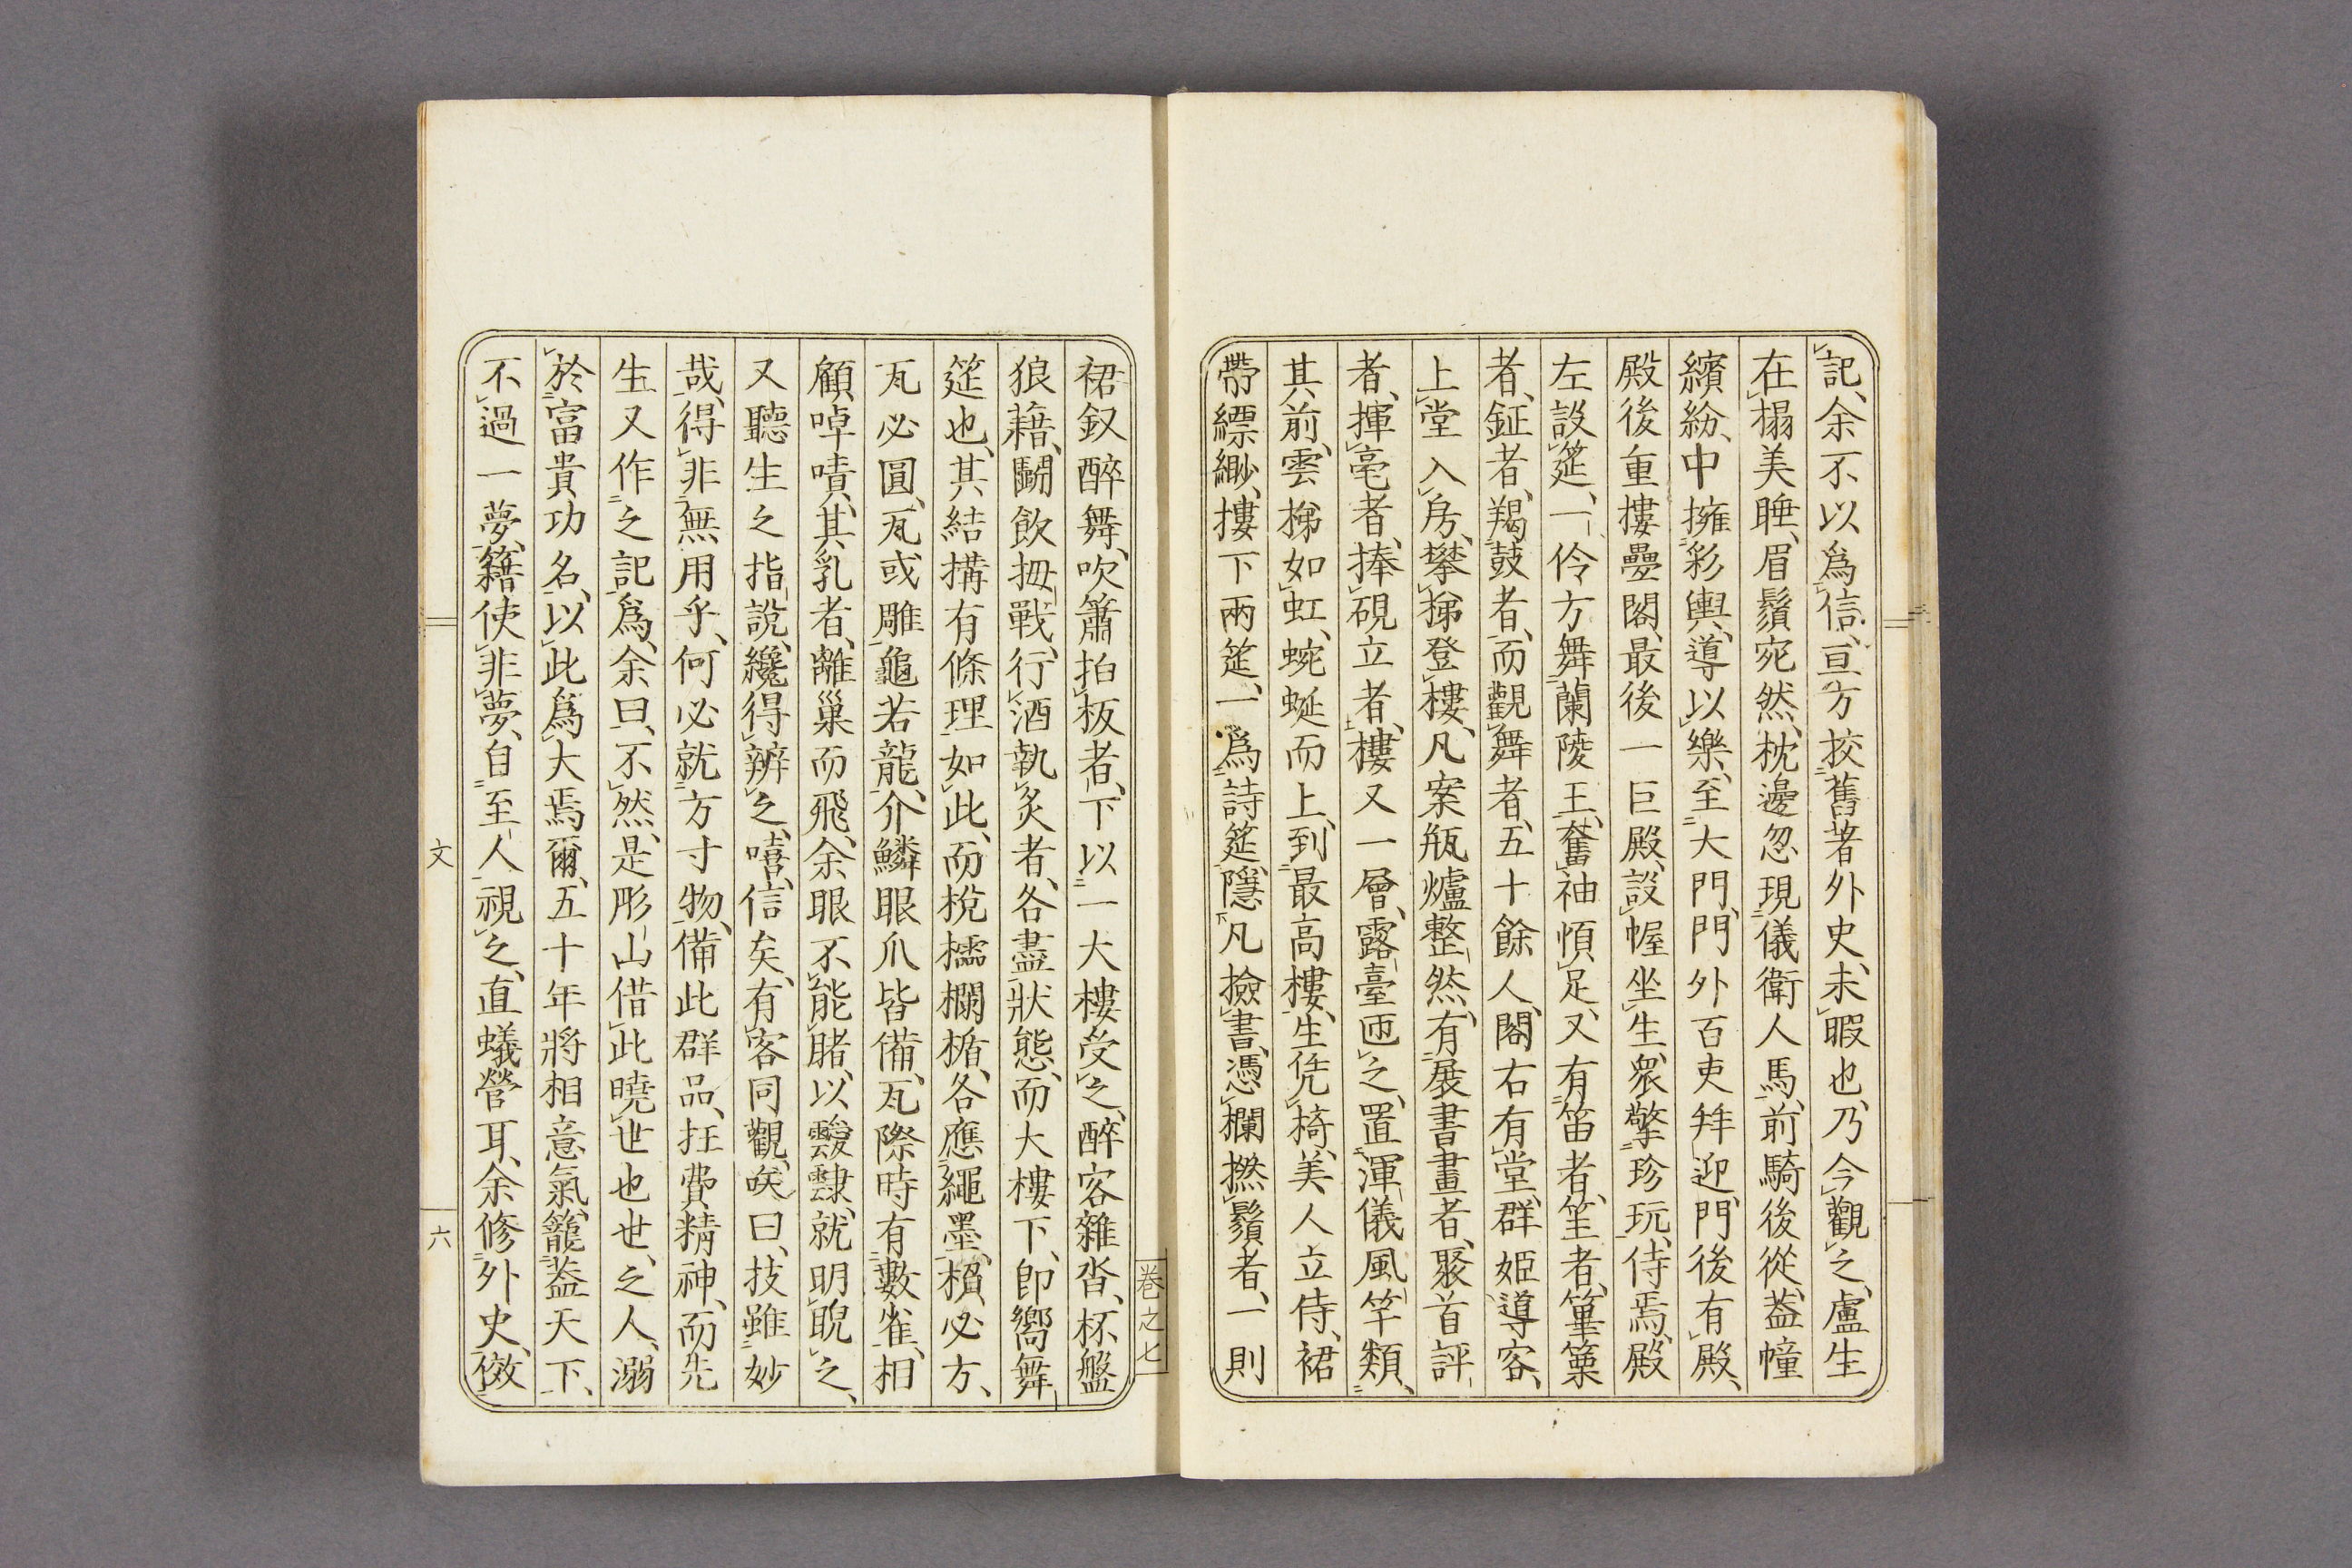 記、余不以爲信、亘方挍舊著外史、未暇也、乃今觀之、盧生
在榻美睡、眉鬚宛然、枕邊忽現儀衛人馬、前騎後從、葢幢
繽紛、中擁彩輿、導以樂、至大門、門外百吏拜迎、門後有殿、
殿後重摟疊閣、最後一巨殿、設幄坐生、衆擎珍玩、侍焉、殿
左設筵、一伶方舞蘭陵王、奮袖傾足、又有笛者、笙者、篳篥
者、鉦者、羯鼓者、而觀舞者、五十餘人、閣右有堂、群姫導客、
上堂入房、攀梯登樓、凡案瓶爐整然、有展書畫者、聚首評
者、揮毫者、捧硯立者、樓又一層、露臺匝之、置渾儀風竿類、
其前、雲梯如虹、蜿蜒而上、到最高樓、生凭椅、美人立侍、裙
帶縹緲、摟下兩筵、一爲詩筵、隱凡撿書、憑欄撚鬚者、一則
裙釵醉舞、吹簫拍板者、下以一大樓受之、醉客雜沓、杯盤
狼藉、鬭飲拇戰、行酒執炙者、各盡狀態、而大樓下、卽嚮舞
筵也、其結搆有條理如此、而梲檽欄楯、各應繩墨、榱必方、
瓦必圓、瓦或雕龜若龍、介鱗眼爪皆備、瓦際時有數雀、相
顧啅嘖、其乳者、離巢而飛、余眼不能睹、以靉靆、就明睨之、
又聽生之指說、纔得辨之、嘻、信矣、有客同觀、唉曰、技雖妙
哉、得非無用乎、何必就方寸物、備此群品、抂費精神、而先
生又作之記爲、余曰、不然、是彫山借此曉世也世之人、溺
於富貴功名、以此爲大焉爾、五十年將相意氣、籠葢天下、
不過一夢、籍使非夢、自至人視之、直蟻營耳、余修外史、傚
卷之七
文
六